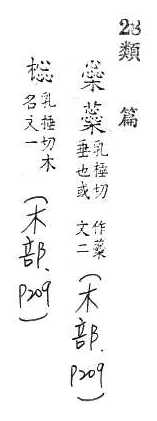 類篇
橤 蘂 乳捶切垂也或作蘂文二（木部、P209）
乳捶切木名文一（木部、P209）